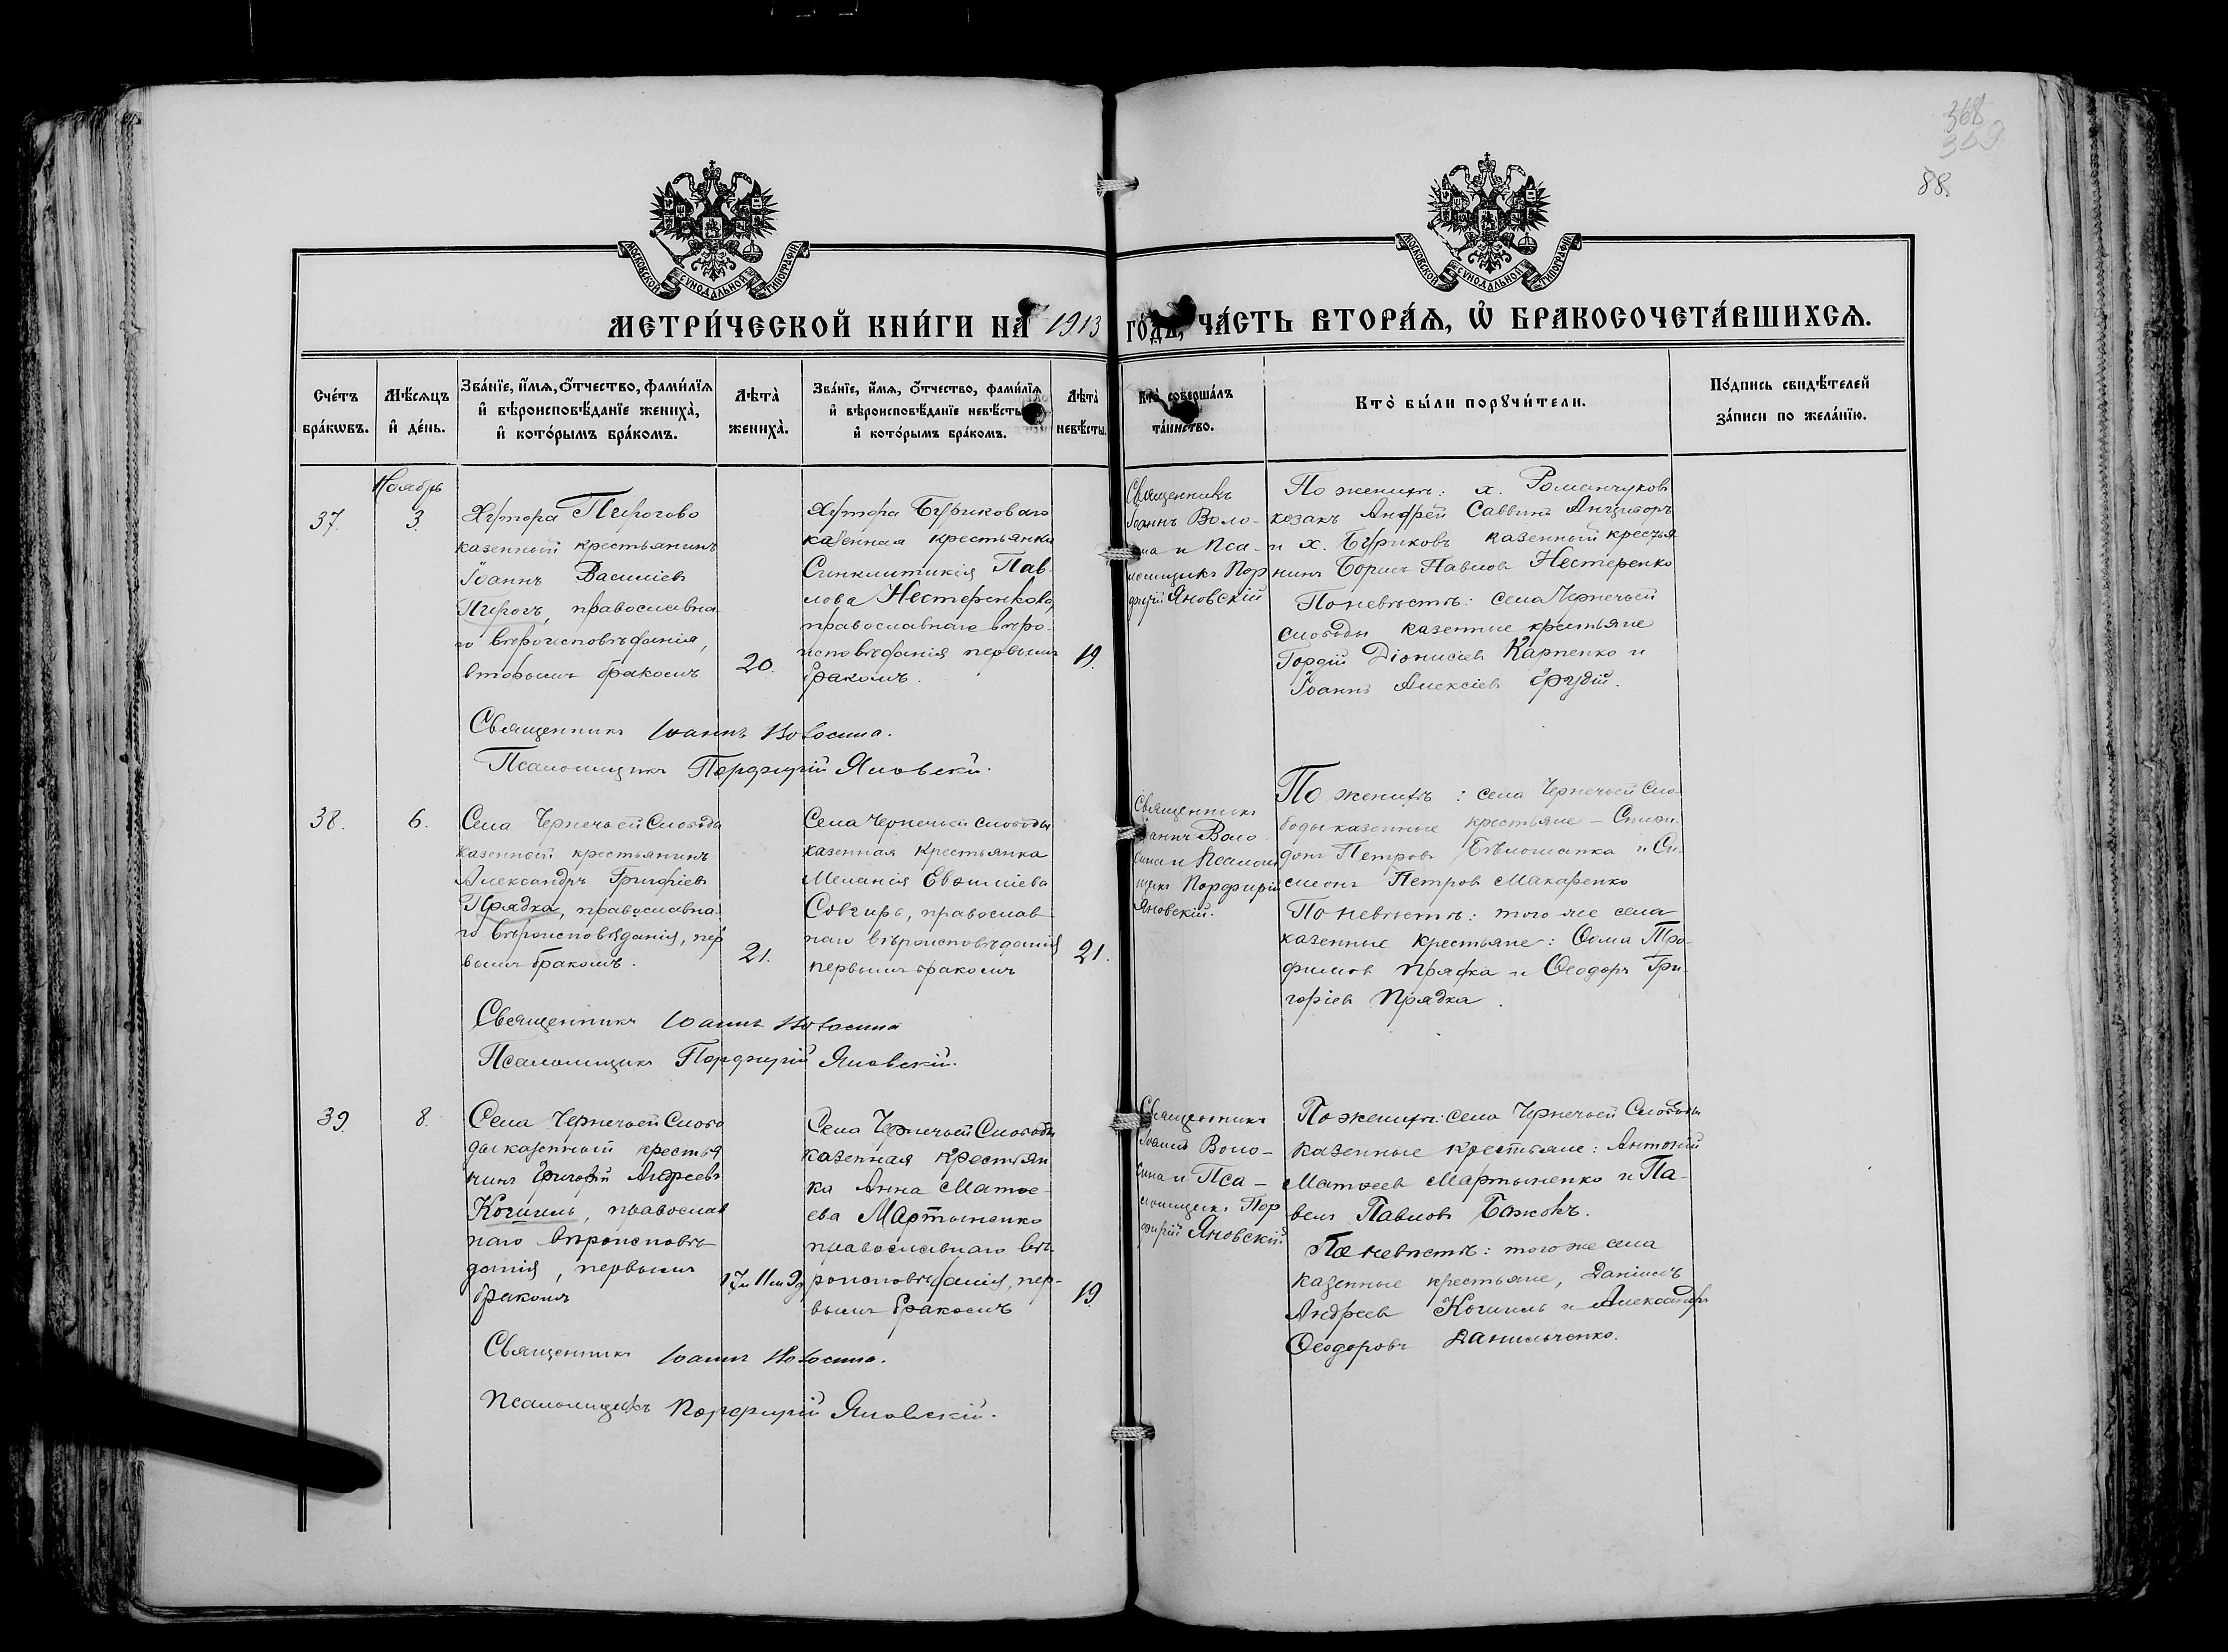 368
359
88.
МОСКОВСКОЙ СУНОДАЛЬНОЙ ТИПОГРАФІИ
МОСКОВСКОЙ СУНОДАЛЬНОЙ ТИПОГРАФІИ
МЕТРИ́ЧЕСКОЙ КНИ́ГИ НА̀ 1913 ГО́ДЪ, ЧА́СТЬ ВТОРА́Ѧ, Ѽ БРАКОСОЧЕТА́ВШИХСѦ.
Сче́тъ
бра́кѡвъ.
Мѣ́сѧцъ
и҆ де́нь.
Зва́нїе, и҆́мѧ, ѻ҆́тчество, фами́лїѧ
и҆ вѣроисповѣ́данїе жениха̀,
и҆ кото́рымъ бра́комъ.
Лѣта̀
жениха̀.
Зва́нїе, и҆́мѧ, ѻ҆́тчество, фами́лїѧ
и҆ вѣроисповѣ́данїе невѣ́сты
и҆ кото́рымъ бра́комъ.
Лѣта̀
невѣ́сты.
Кто̀ соверша́лъ
та́инство.
Кто̀ бы́ли порꙋчи́тели.
По́дпись свидѣ́телей
за́писи по жела́нїю.
Ноябрь
37.
3.
Хутора Пирогово
казенный крестьянинъ
Іоаннъ Василіевъ
Пирогъ, православна
го вѣроисповѣданія,
вторымъ бракомъ
20.
Хутора Буриковаго
казенная крестьянка
Синклитикія Пав-
лова Нестеренкова,
православнаго вѣро-
исповѣданія первымъ
бракомъ.
19.
Священникъ
Іоаннъ Воло-
сина и Пса-
ломщикъ Пор
фирій Яновскій
По женихѣ: х. Романчуковъ
козакъ Андрей Саввинъ
и х. Буриковъ казенный крестья
нинъ Борисъ Павловъ Нестеренко
По невѣстѣ: села Чернечьей
слободы казенные крестьяне
Гордій Діонисіевъ Карпенко и
Іоаннъ Алексіевъ
Священникъ Іоаннъ Волосина.
Псаломщикъ Порфирій Яновскій.
38.
6.
Села Чернечьей Слободы
казенный крестьянинъ
Александръ Григоріевъ
Прядка, православна-
го вѣроисповѣданія, пер
вымъ бракомъ.
21.
Села Чернечьей Слободы
казенная крестьянка
Меланія Евфиміева
Совгирь, православ
наго вѣроисповѣданія
первымъ бракомъ
21.
Священникъ
Іоаннъ Воло-
сина и Псалом
щикъ Порфирій
Яновскій.
По женихѣ: села Чернечьей Сло-
боды казенные крестьяне – Спири-
донъ Петровъ Бѣлошапка и Си-
меонъ Петровъ Макаренко
По невѣстѣ: того же села
казенные крестьяне: Ѳома Тро-
фимовъ Прядка и Ѳеодоръ Гри-
горіевъ Прядка.
Священникъ Іоаннъ Волосина
Псаломщикъ Порфирій Яновскій.
39.
8.
Села Чернечьей Слобо
ды казенный крестья
нинъ Григорій Андреевъ
Когшиль, православ
наго вѣроисповѣ-
данія, первымъ
бракомъ
17 л 11 м 9 д
Села Чернечьей Слободы
казенная крестьян
ка Анна Матѳе-
ева Мартыненко
православнаго вѣ-
роисповѣданія, пер-
вымъ бракомъ
19.
Священникъ
Іоаннъ Воло-
сина и Пса-
ломщикъ Пор
фирій Яновскій
По женихѣ: села Чернечьей Слободы
казенные крестьяне: Антоній
Матѳеевъ Мартыненко и Па-
велъ Павловъ Божокъ.
По невѣстѣ: того же села
казенные крестьяне, Даніилъ
Андреевъ Когшиль и Александръ
Ѳеодоровъ Данильченко.
Священникъ Іоаннъ Волосина.
Псаломщикъ Порфирій Яновскій.